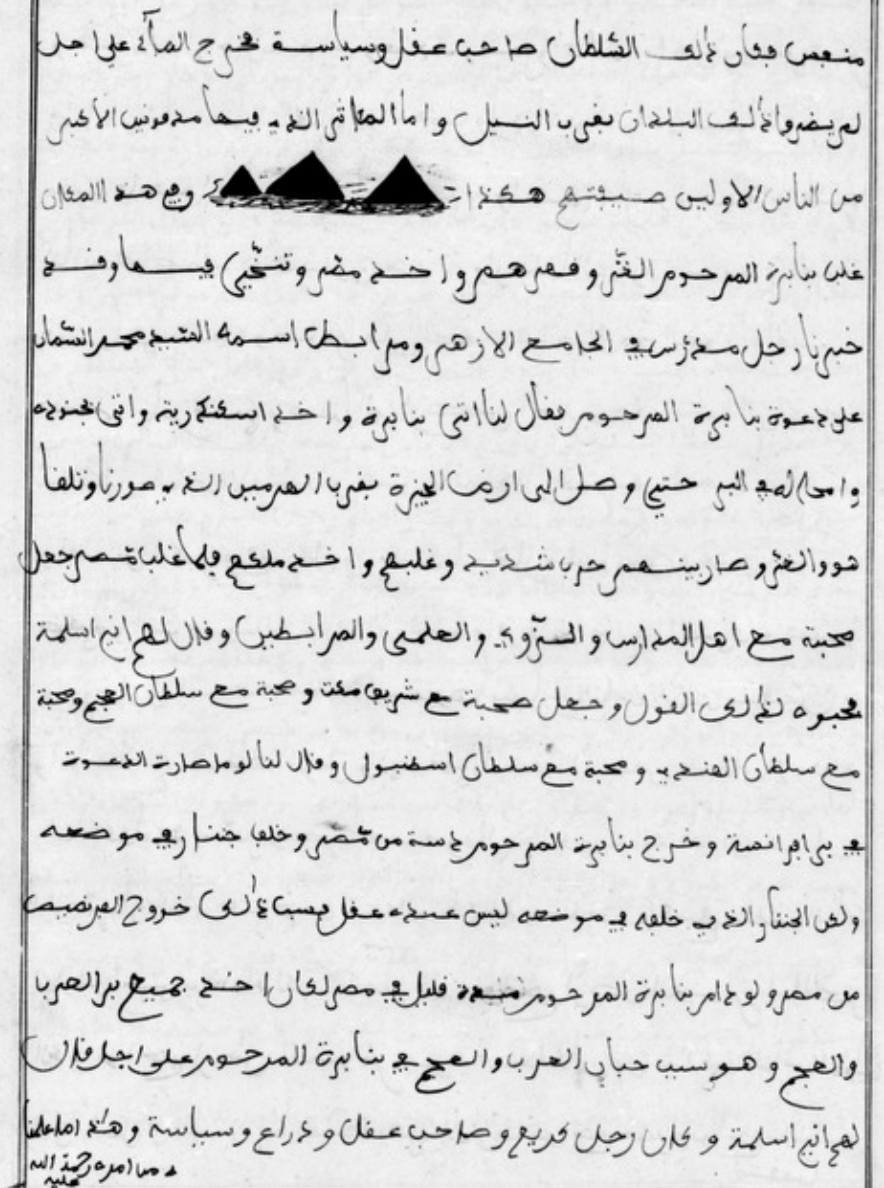 منعس فكان ذالك السّلطان صاحب عفل وسياسة مخرج المآء على اجل
لم يضروا ذالك البلدان بفرب النيل واما المفابر الذي فيها مدفونين الاكبر
من الناس الاولين صيفتهم هكذا وفي هذا المكان
غلب بنابرة المرحوم الغُز وفهرهم واخذ مصر وتنحّي فيها وفد
خبرنا رجل مدرّس في الجامع الازهر ومرابط اسمه الشيد محمد الشمان
على دعوة بنابرة المرحوم ففال لنا اتى بنابرة واخذ اسكندرية واتى بجنوده
وامحاله في البر حتى وصل الى ارض الجيزة بفرب الهرمين الذي صورنا وتلفا
هو والغز وصار بينهم حرب شديد وغلبهم واخذ ملكهم فلما غلب مصر جعل
محبة مع اهل المدارس والسرّوي والعلمى والمرابطين وفال لهم اني اسلمة
فحبوه لذالك الفول وجعل صحبة مع شريف مكة ومحبة مع سلطان العجم ومحبة
مع سلطان الهندي ومحبة مع سلطان اسطنبول وفال لنا لو ما صارت الدعوت
في بر ابرانصة وخرج بنابرة المرحوم دسة من مصر وخلف جننار في موضعه
ولكن الجننار الذي خلفه في موضعه ليس عنده عفل فسبب ذالك خروج الفرنصيص
من مصر ولو دام بنابرة المرحوم مدة فليل في مصر لكان اخذ جميع بر العرب
والعجم وهو سبب حبان العرب والعجم في بنابرة المرحوم على اجل فال
لهم اني اسلمة وكان رجل كريم وصاحب عفل وذراع وسياسة وهذا ما علمنا
من امره رحمة الله
عليه